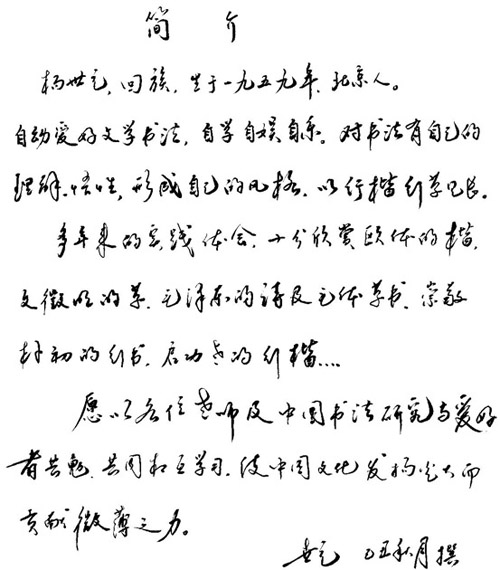 简介
杨世元，回族，生于一九五九年，北京人。
自幼爱好文学书法，自学自娱自乐。对书法有自己的
理解悟性，形成自己的风格，以行楷行草见长。
多年来的实践体会，十分欣赏欧体的楷，
文徵明的草，毛泽东的诗及毛体草书，崇敬
的行书，启功老的行楷....
愿以各位老师及中国书法研究与爱好
者共勉，共同相互学习，使中国文化发扬光大而
贡献微薄之力。
世元 乙丑秋月撰